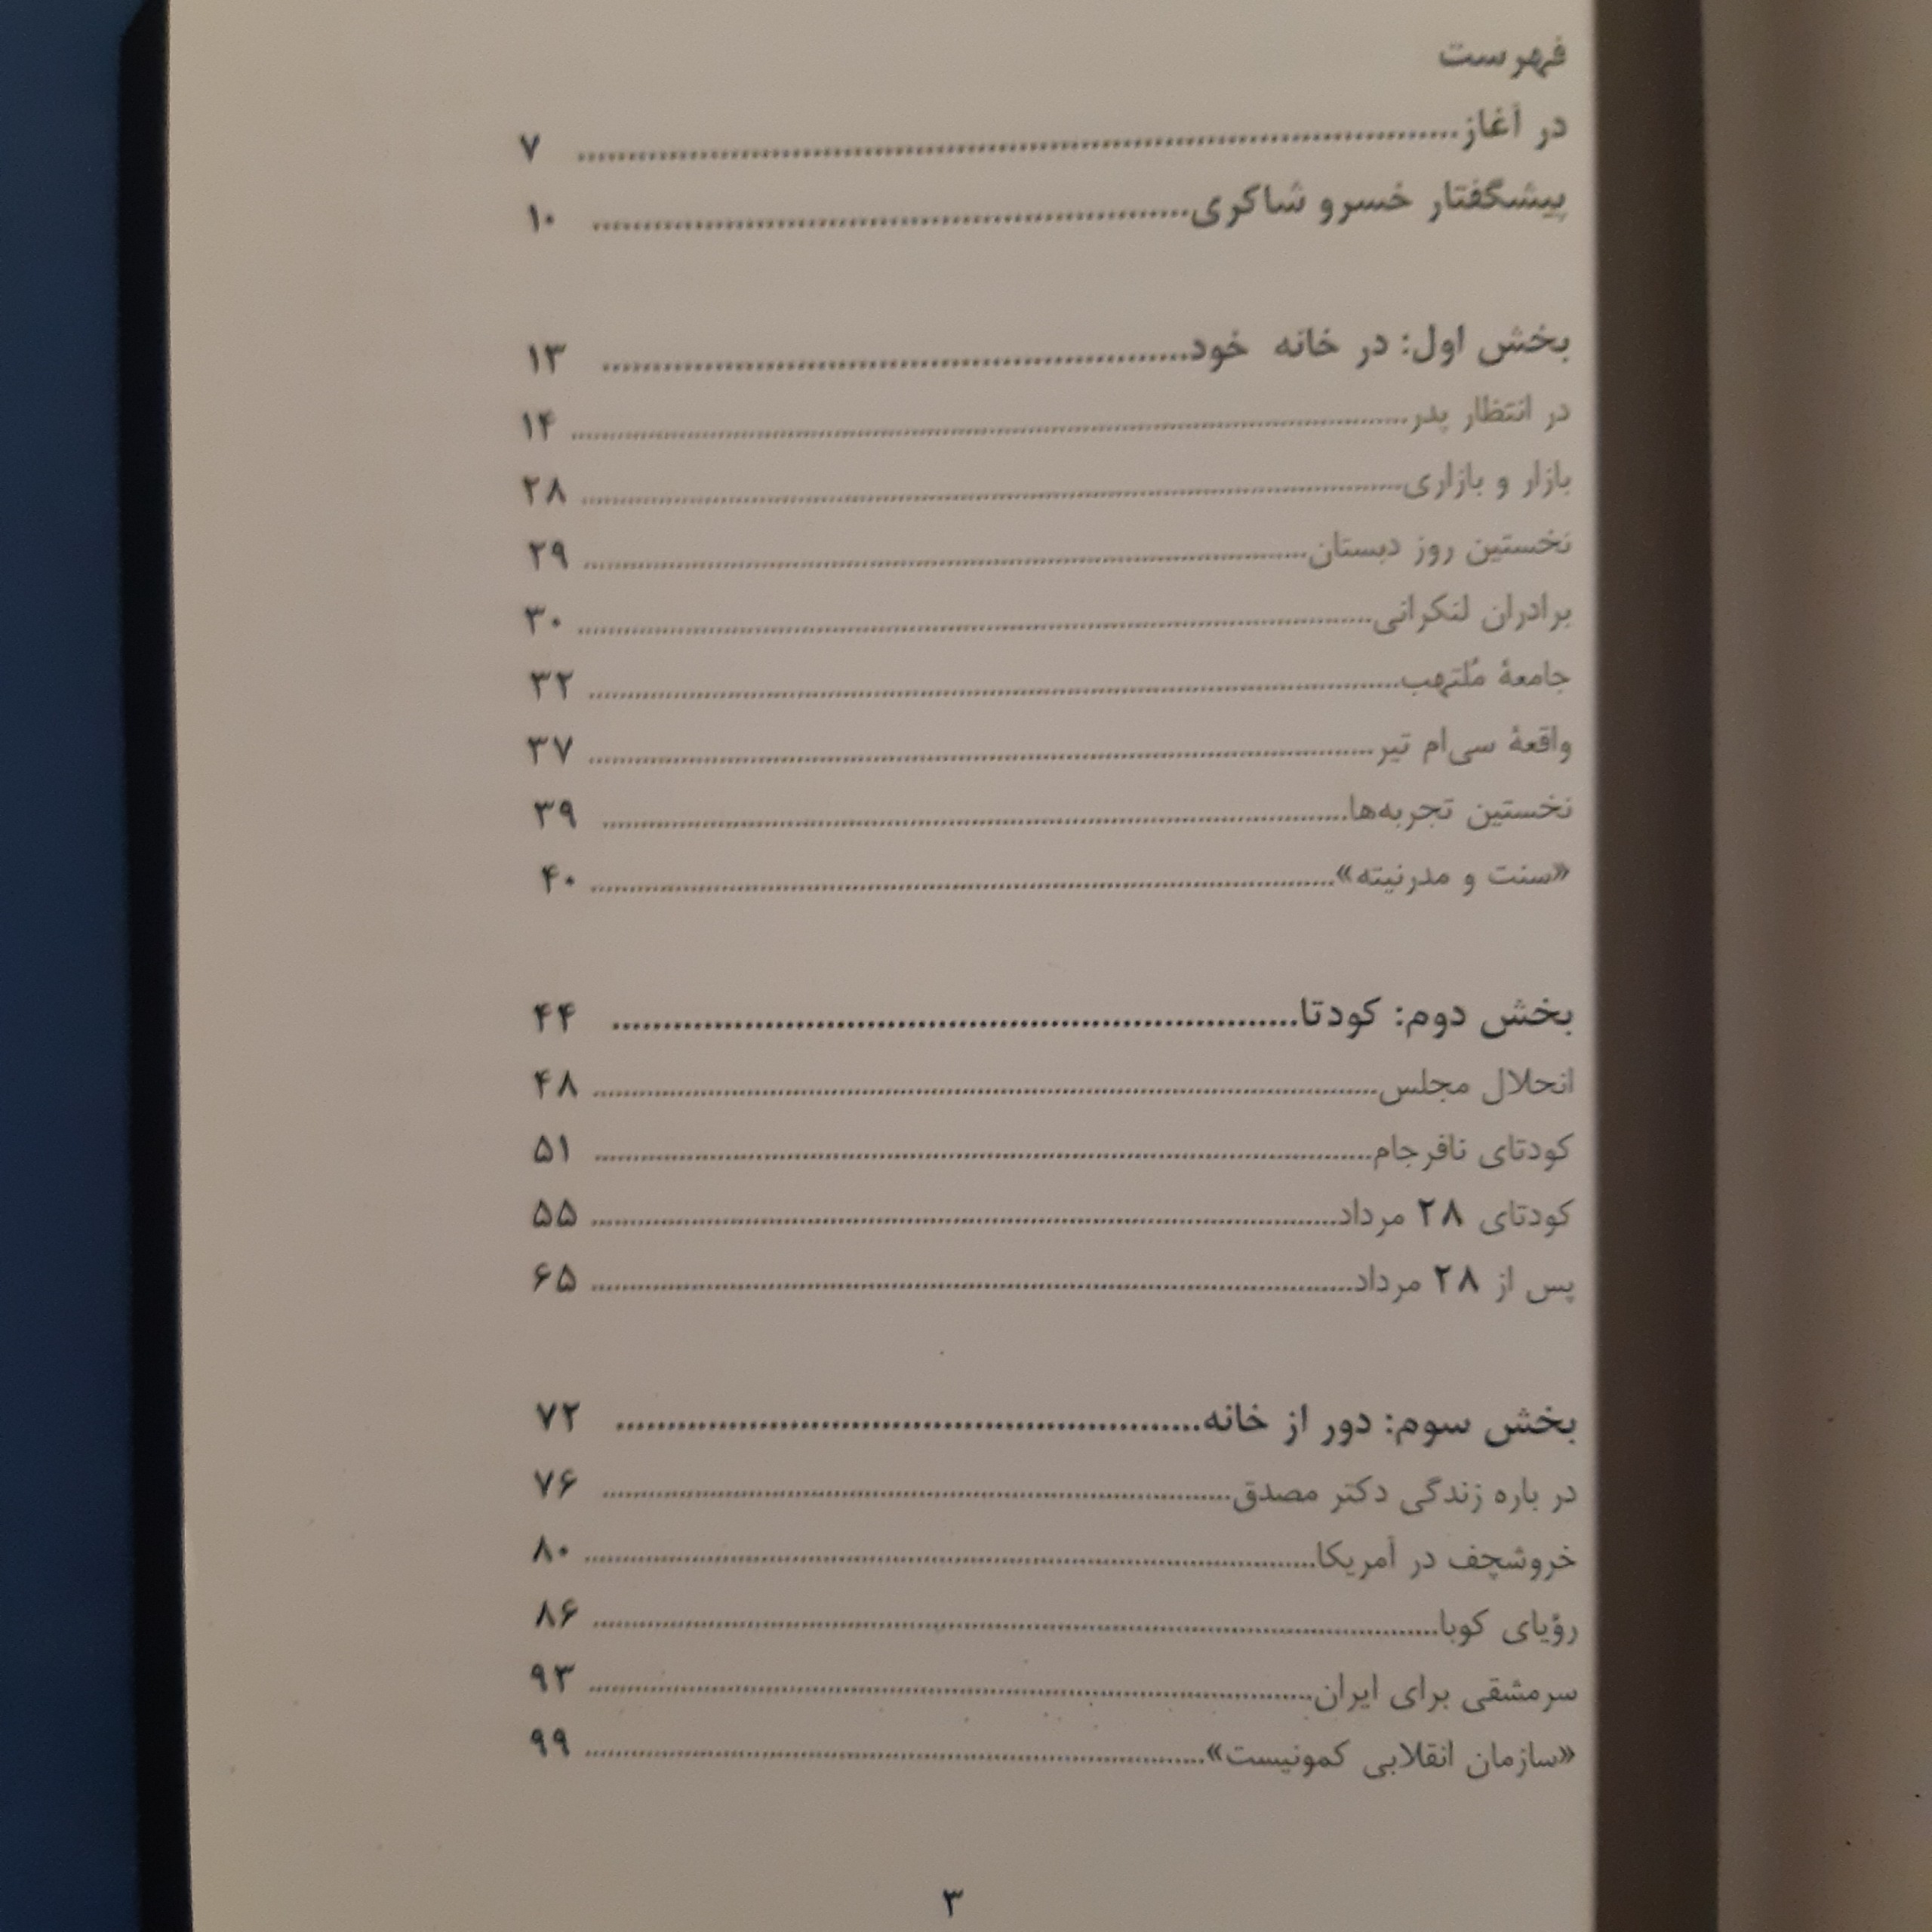 فهرست
در آغاز................................................ ۷
پیشگفتار خسرو شاکری................................................ ۱۰
بخش اول: در خانه خود................................................ ۱۳
در انتظار پدر................................................ ۱۴
بازار و بازاری................................................ ۲۸
نخستین روز دبستان................................................ ۲۹
برادران لنکرانی................................................ ۳۰
جامعهٔ مُلتهب................................................ ۳۲
واقعهٔ سی‌ام تیر................................................ ۳۷
نخستین تجربه‌ها................................................ ۳۹
«سنت و مدرنیته»................................................ ۴۰
بخش دوم: کودتا................................................ ۴۴
انحلال مجلس................................................ ۴۸
کودتای نافرجام................................................ ۵۱
کودتای ۲۸ مرداد................................................ ۵۵
پس از ۲۸ مرداد................................................ ۶۵
بخش سوم: دور از خانه................................................ ۷۲
در باره زندگی دکتر مصدق................................................ ۷۶
خروشچف در آمریکا................................................ ۸۰
رؤیای کوبا................................................ ۸۶
سرمشقی برای ایران................................................ ۹۳
«سازمان انقلابی کمونیست»................................................ ۹۹
۳